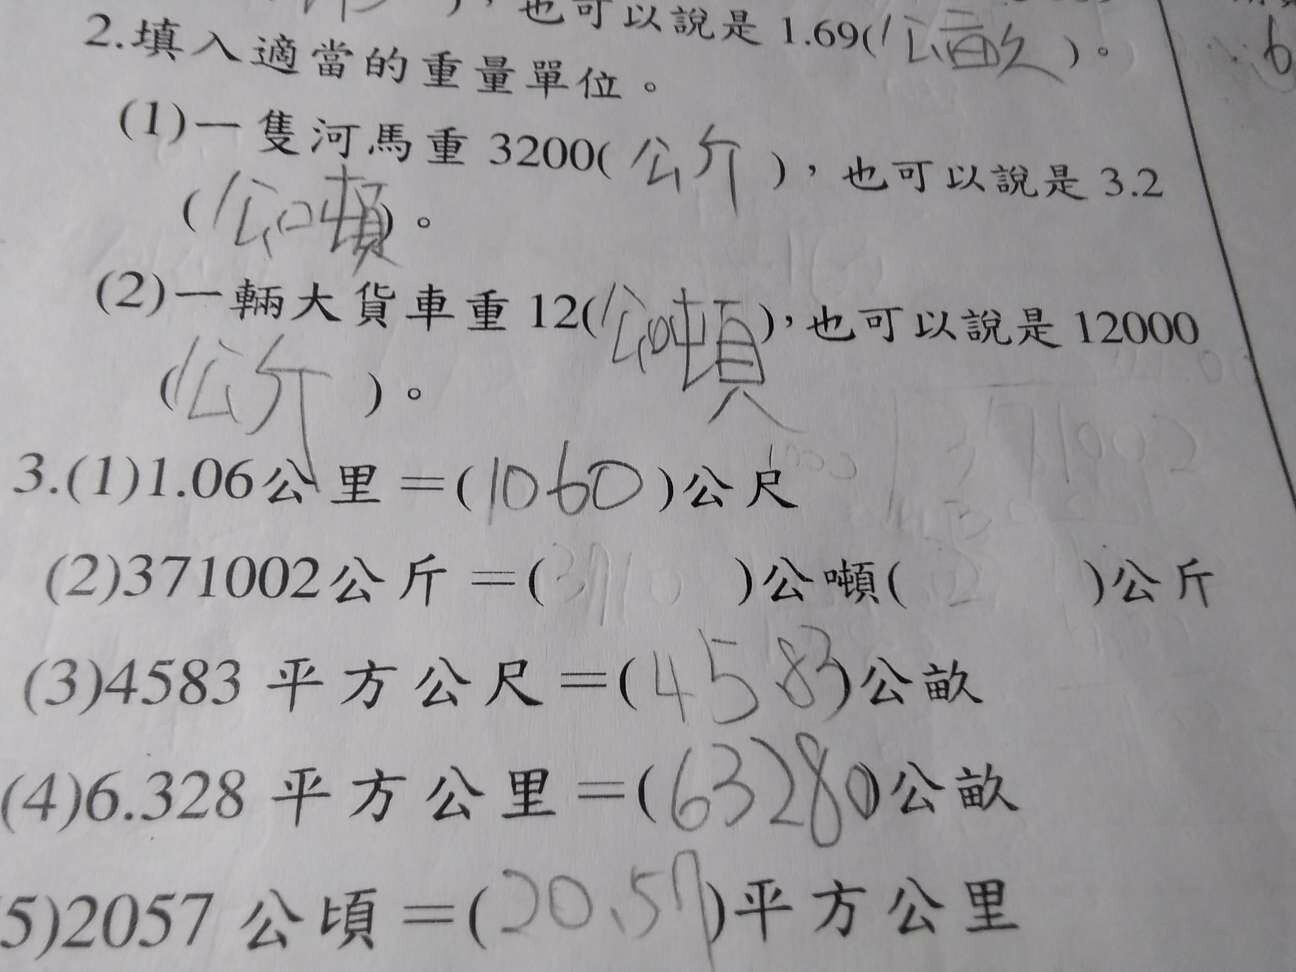 )，也可以說是 1.69(公畝)。
2.填入適當的重量單位。
(1)一隻河馬重 3200(公斤)，也可以說是 3.2
(公噸)。
(2)一輛大貨車重 12(公噸)，也可以說是 12000
(公斤)。
3.(1)1.06公里＝(1060)公尺
(2)371002公斤＝( )公噸( )公斤
(3)4583 平方公尺＝(45.83)公畝
(4)6.328 平方公里＝(63280)公畝
(5)2057 公頃＝(20.57)平方公里